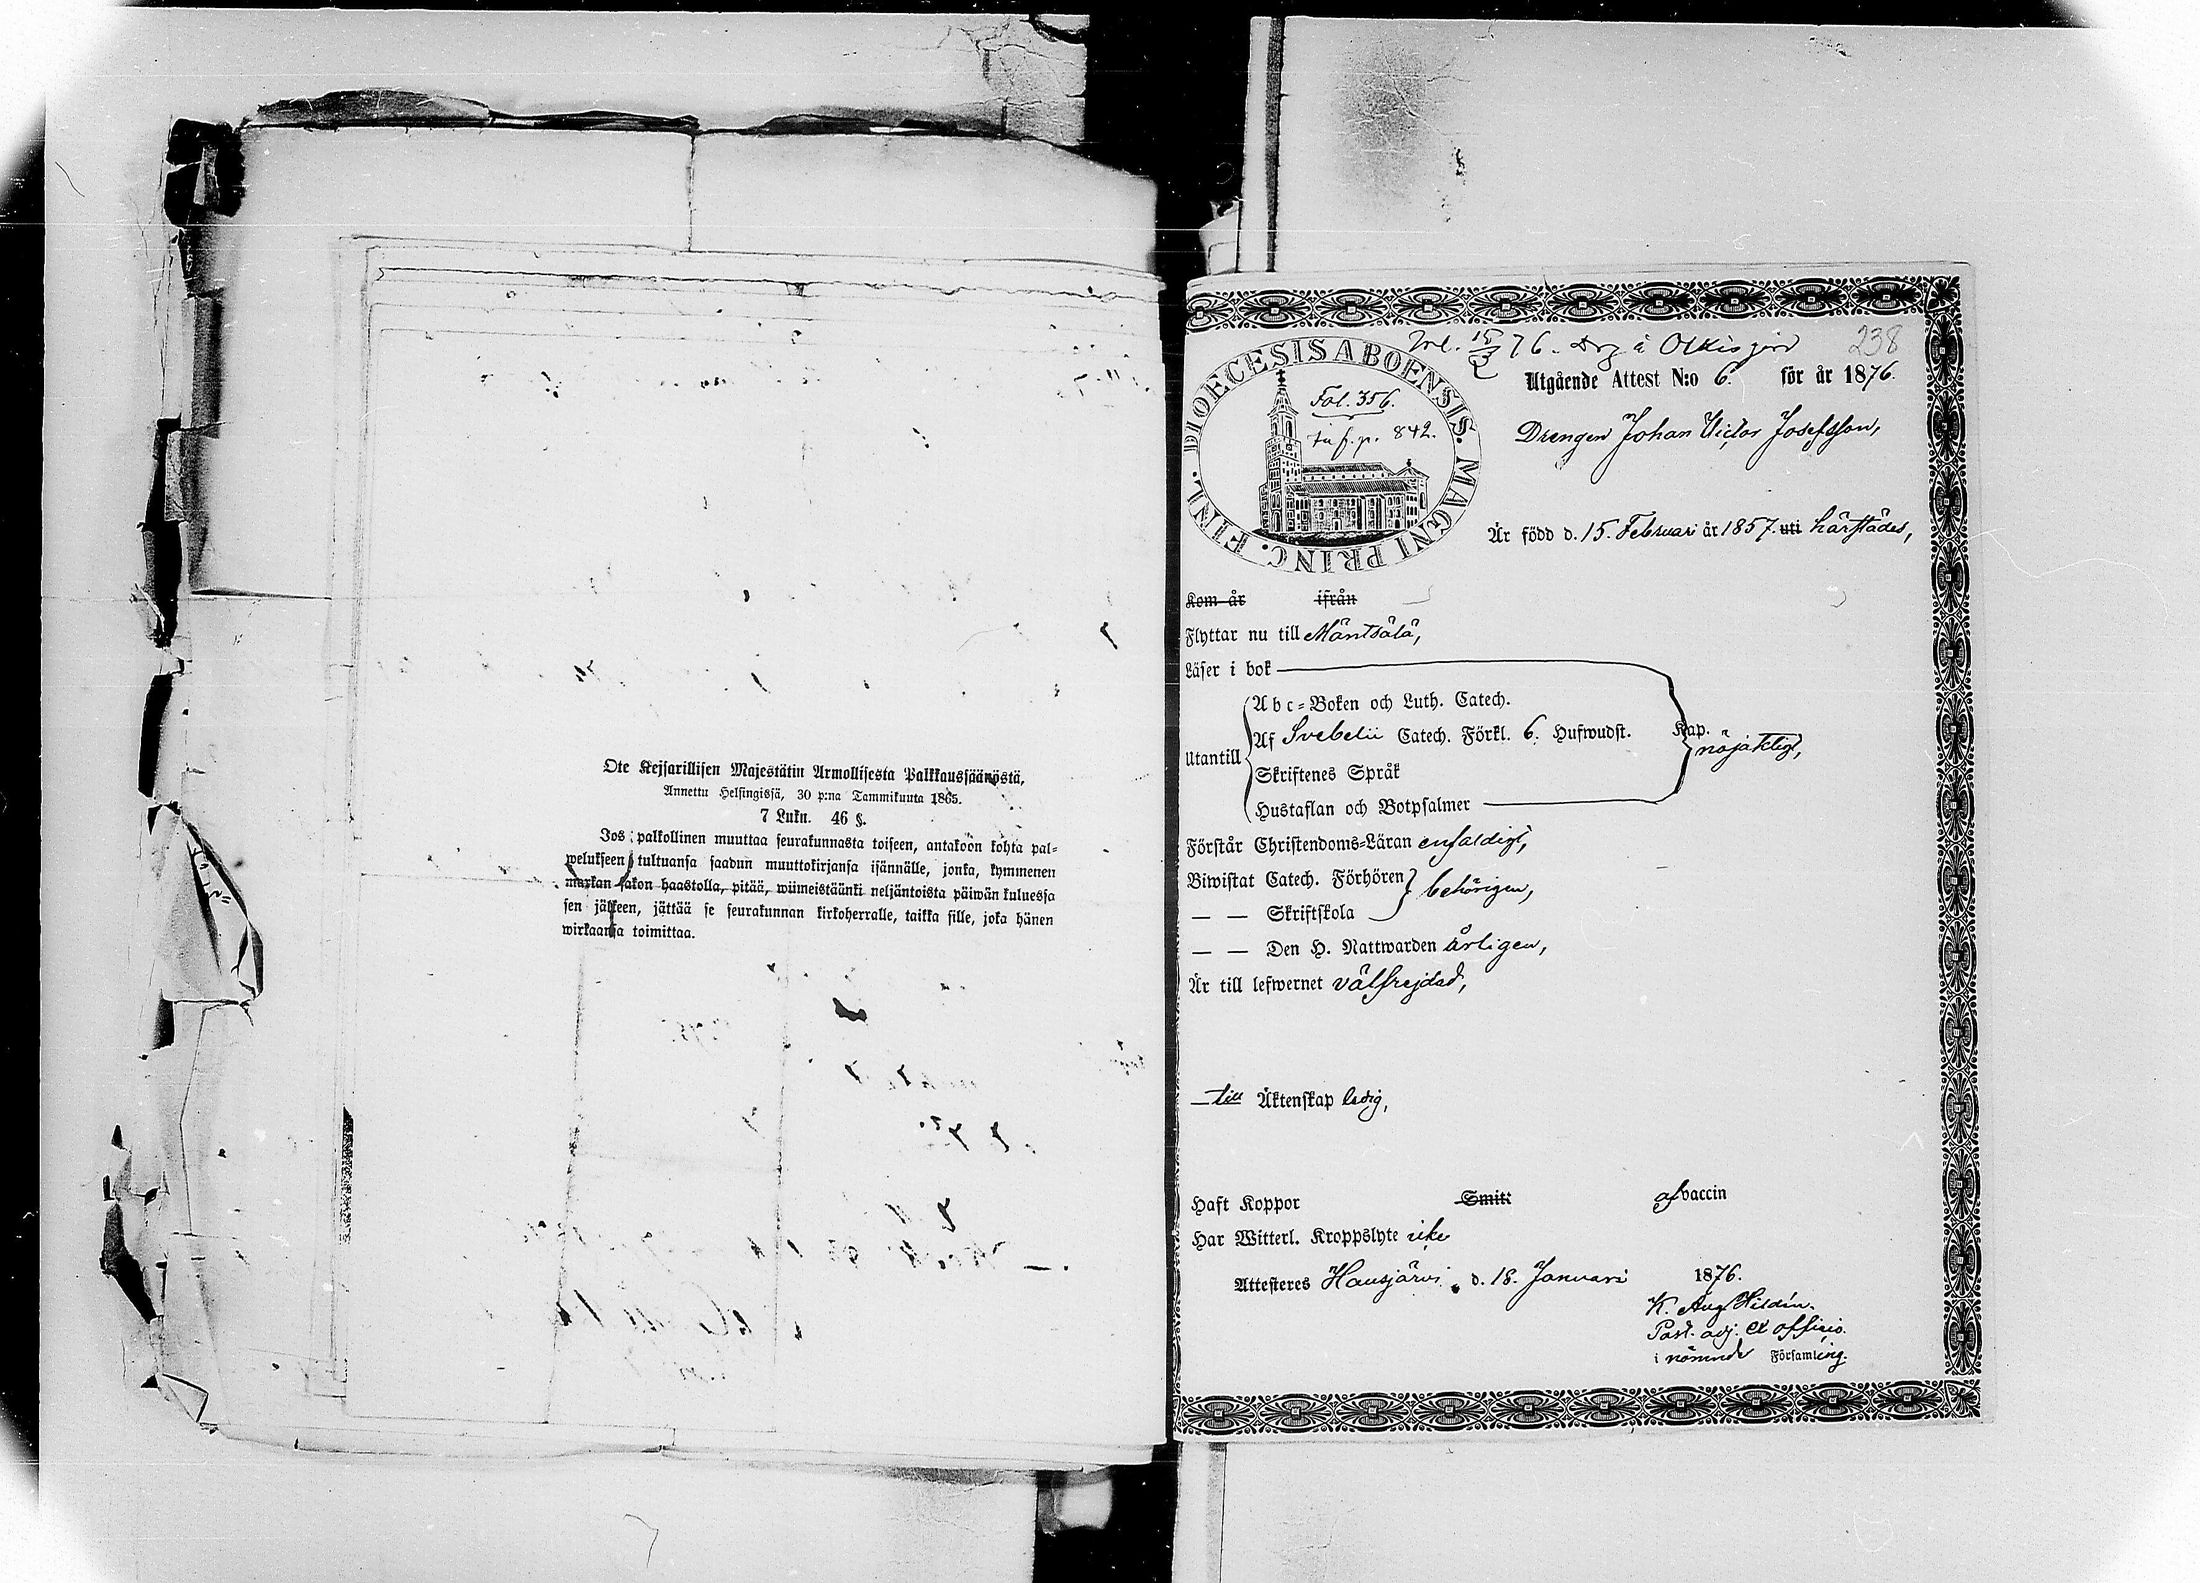 Ote Kejsarillisen Majestätin Armollisesta Palkkaussäännöstä,
Annettu Helsingissä, 30 p:na Tammikuuta 1865.
7 Luku. 46 §.
Jos palkollinen muuttaa seurakunnasta toiseen, antakoon kohta pal=
welukseen tultuansa saadun muuttokirjansa isännälle, jonka, kymmenen
markan sakon haastolla, pitää, wiimeistäänki neljäntoista päiwän kuluessa
sen jälkeen, jättää se seurakunnan kirkoherralle, taikka sille, joka hänen
wirkaansa toimittaa.
238
76. Drg å Olkis
Utgående Attest N:o 6. för år 1876.
DIOECESIS ABOENSIS. MAGNI PRINC. FINL.
Fol. 356.
inf. p. 842.
Drengen Johan Victor Josefsson,
Är född d. 15. Februari år 1857. uti härstädes,
Kom år ifrån
Flyttar nu till Mäntsälä,
Läser i bok
Abc=Boken och Luth. Catech.
Utantill Af Svebelii Catech. Förkl. 6. Hufwudst. Kap. nöjaktigt,
Skriftenes Språk
Hustaflan och Botpsalmer
Förstår Christendoms=Läran enfaldigt,
Biwistat Catech. Förhören behörigen,
— — Skriftskola
— — Den H. Nattwarden årligen,
Är till lefwernet välfrejdad,
— till Äktenskap ledig,
Haft Koppor Smit: af vaccin
Har Witterl. Kroppslyte icke
Attesteres Hausjärvi d. 18. Januari 1876.
K. Aug. Hildén.
Past. adj. ex officio.
i nämnde Församling.